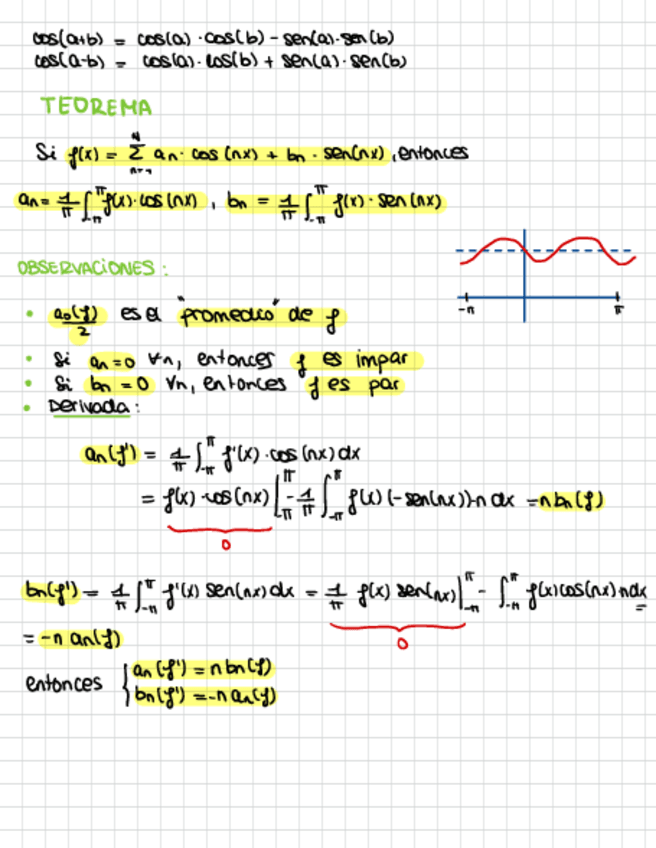 cos(a+b) = cos(a)·cos(b) - sen(a)·sen(b)
cos(a-b) = cos(a)·cos(b) + sen(a)·sen(b)
TEOREMA
Si f(x) = N Σ n=1 an· cos (nx) + bn · sen(nx), entonces
an = 1/π ∫_-π^π f(x)·cos(nx), bn = 1/π ∫_-π^π f(x)·sen(nx)
OBSERVACIONES:
-π π
• a0(f)/2 es el "promedio" de f
• Si an=0 ∀n, entonces f es impar
• Si bn=0 ∀n, entonces f es par
• Derivada:
an(f') = 1/π ∫_-π^π f'(x)·cos(nx)dx
= f(x)·cos(nx) |_-π^π - 1/π ∫_-π^π f(x)(-sen(nx))·n dx = nbn(f)
0
bn(f') = 1/π ∫_-π^π f'(x) sen(nx)dx = 1/π f(x) sen(nx)|_-π^π - ∫_-π^π f(x)cos(nx)ndx =
0
= -n an(f)
entonces { an(f') = n bn(f)
bn(f') = -n an(f)